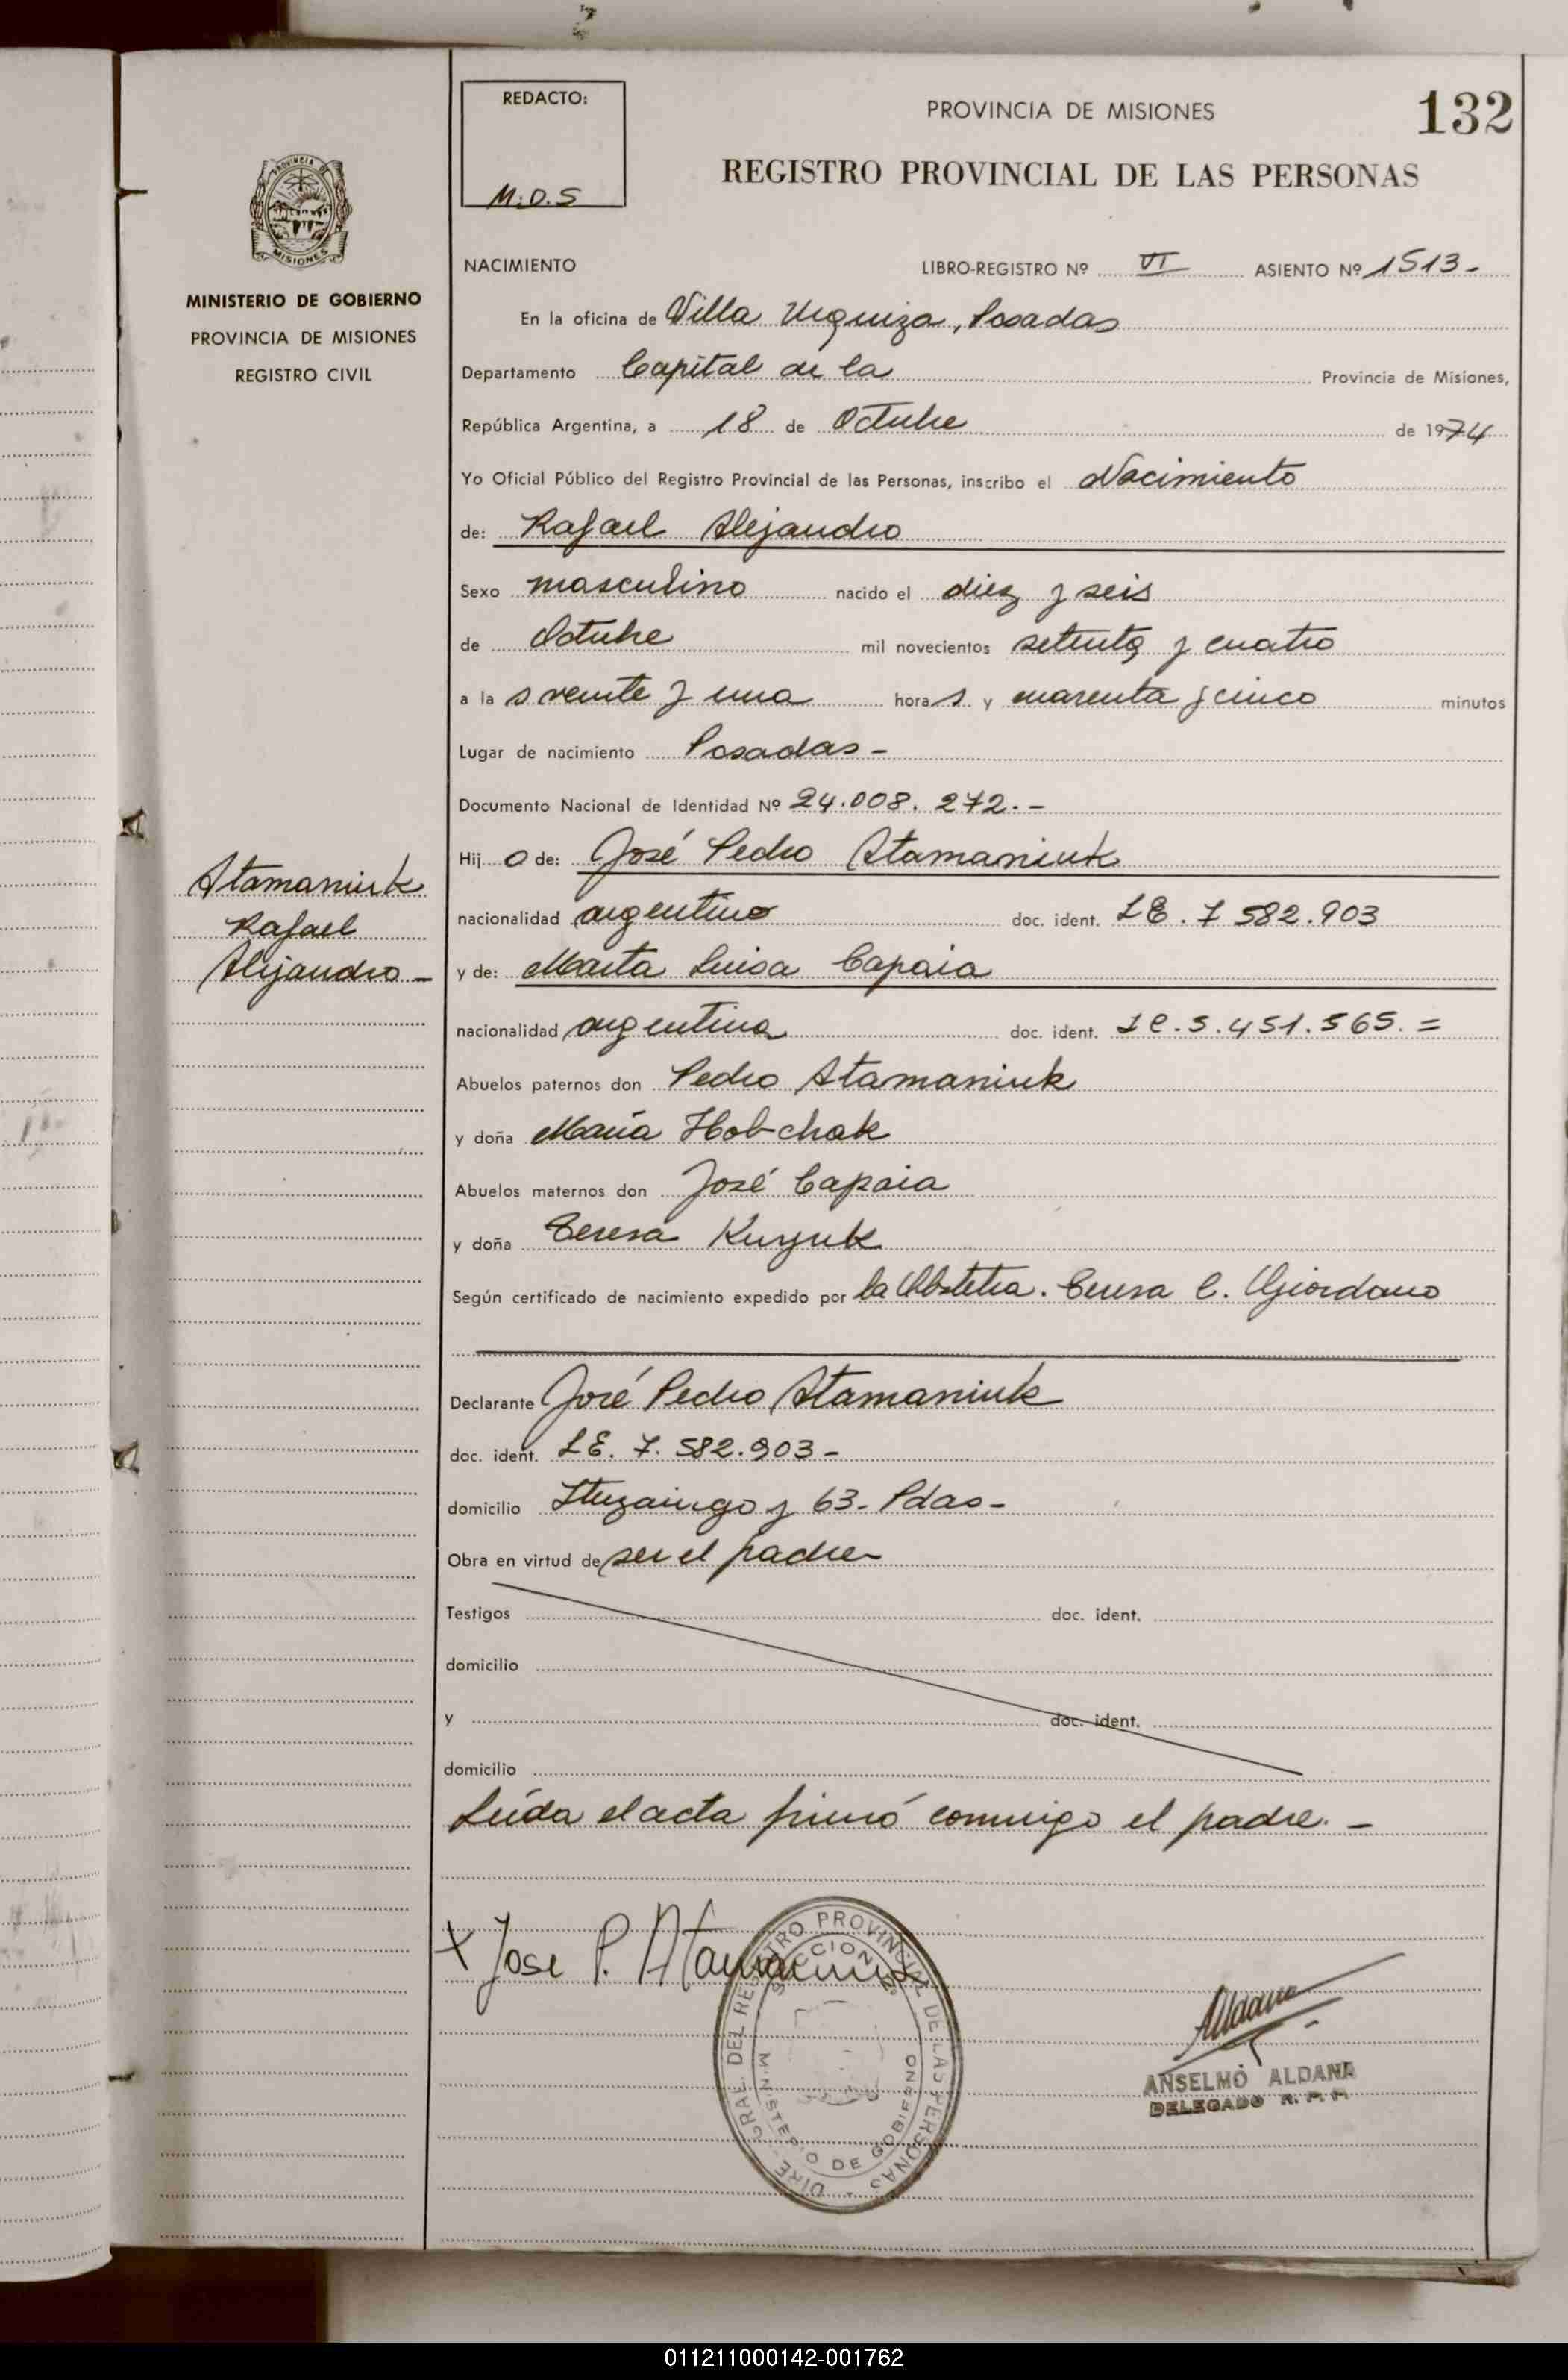 REDACTO:
M.D.S
PROVINCIA DE MISIONES
132
REGISTRO PROVINCIAL DE LAS PERSONAS
PROVINCIA DE
MISIONES
MINISTERIO DE GOBIERNO
PROVINCIA DE MISIONES
REGISTRO CIVIL
NACIMIENTO LIBRO-REGISTRO Nº VI ASIENTO Nº 1513-
En la oficina de Villa Urquiza, Posadas
Departamento Capital de la Provincia de Misiones,
República Argentina, a 18 de Octubre de 1974
Yo Oficial Público del Registro Provincial de las Personas, inscribo el Nacimiento
de: Rafael Alejandro
Sexo masculino nacido el diez y seis
de Octubre mil novecientos setenta y cuatro
a la s veinte y una hora s y cuarenta y cinco minutos
Lugar de nacimiento Posadas -
Documento Nacional de Identidad Nº 24.008.272.-
Hij o de: José Pedro Atamaniuk
Atamaniuk
Rafael
Alejandro -
nacionalidad argentino doc. ident. LE. 7 582.903
y de: Marta Luisa Capaia
nacionalidad argentina doc. ident. LC.5.451.565.=
Abuelos paternos don Pedro Atamaniuk
y doña María Hobchak
Abuelos maternos don José Capaia
y doña Teresa
Según certificado de nacimiento expedido por la Obstetra. Teresa C. Giordano
Declarante José Pedro Atamaniuk
doc. ident. LE. 7. 582.903-
domicilio Ituzaingo y 63- Pdas-
Obra en virtud de ser el padre-
Testigos doc. ident.
domicilio
y doc. ident.
domicilio
Leída el acta firmó conmigo el padre. -
x Jose P. Atamaniuk
DIRE. GRAL. DEL REGISTRO PROVINCIAL DE LAS PERSONAS
SECCION 2º
MINISTERIO DE GOBIERNO
Aldana
ANSELMO ALDANA
DELEGADO R. P. P.
011211000142-001762